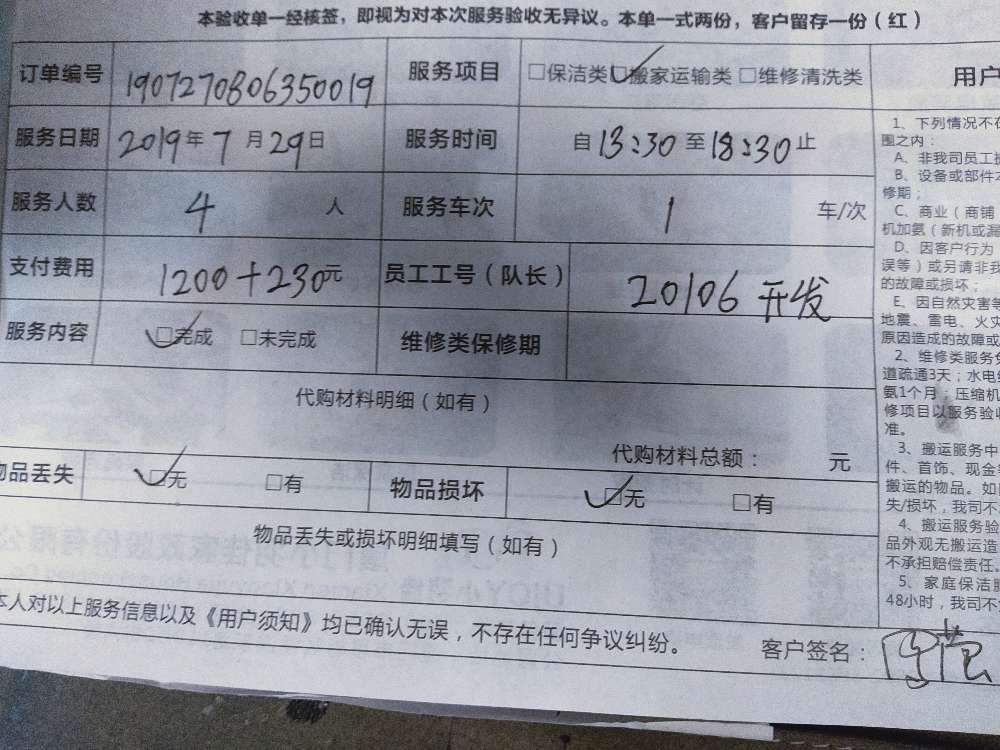 本验收单一经核签，即视为对本次服务验收无异议。本单一式两份，客户留存一份（红）
订单编号 1907270806350019 服务项目 □保洁类 ☑搬家运输类 □维修清洗类
服务日期 2019年7月29日 服务时间 自13:30至18:30止
服务人数 4人 服务车次 1车/次
支付费用 1200+230元 员工工号（队长） 20106 开发
服务内容 ☑完成 □未完成 维修类保修期
代购材料明细（如有）
代购材料总额： 元
物品丢失 ☑无 □有 物品损坏 ☑无 □有
物品丢失或损坏明细填写（如有）
本人对以上服务信息以及《用户须知》均已确认无误，不存在任何争议纠纷。
客户签名：
用户
1、下列情况不在
围之内：
A、非我司员工
B、设备或部件
修期；
C、商业（商铺
机加氨（新机或漏
D、因客户行为
误等）或另请非我
的故障或损坏；
E、因自然灾害等
地震、雷电、火灾
原因造成的故障或
2、维修类服务
道疏通3天；水电
氨1个月；压缩机
修项目以服务验收
准。
3、搬运服务中
件、首饰、现金
搬运的物品。如
失/损坏，我司不
4、搬运服务验
品外观无搬运造
不承担赔偿责任。
5、家庭保洁服
48小时，我司不